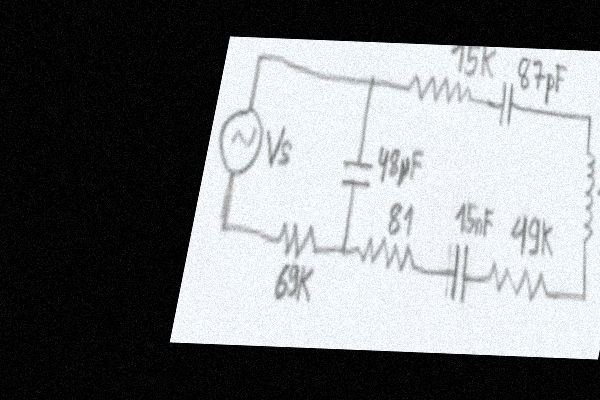 15K
87pF
Vs
48pF
81
15nF
49K
69K